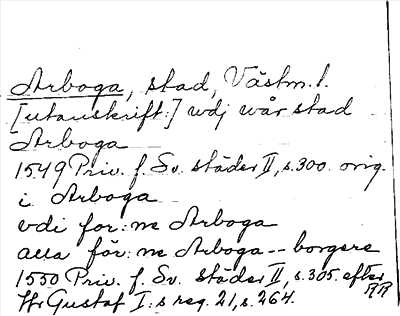 Arboga, stad, Västm. l.
[utanskrift:] wdj wår stad
Arboga
1549 Priv. f. Sv. städer II, s. 300. orig.
i Arboga
vdi for:ne Arboga
alla för:ne Arboga -- borgere
1550 Priv. f. Sv. städer II, s. 305. efter
Gustaf I:s reg. 21, s. 264.